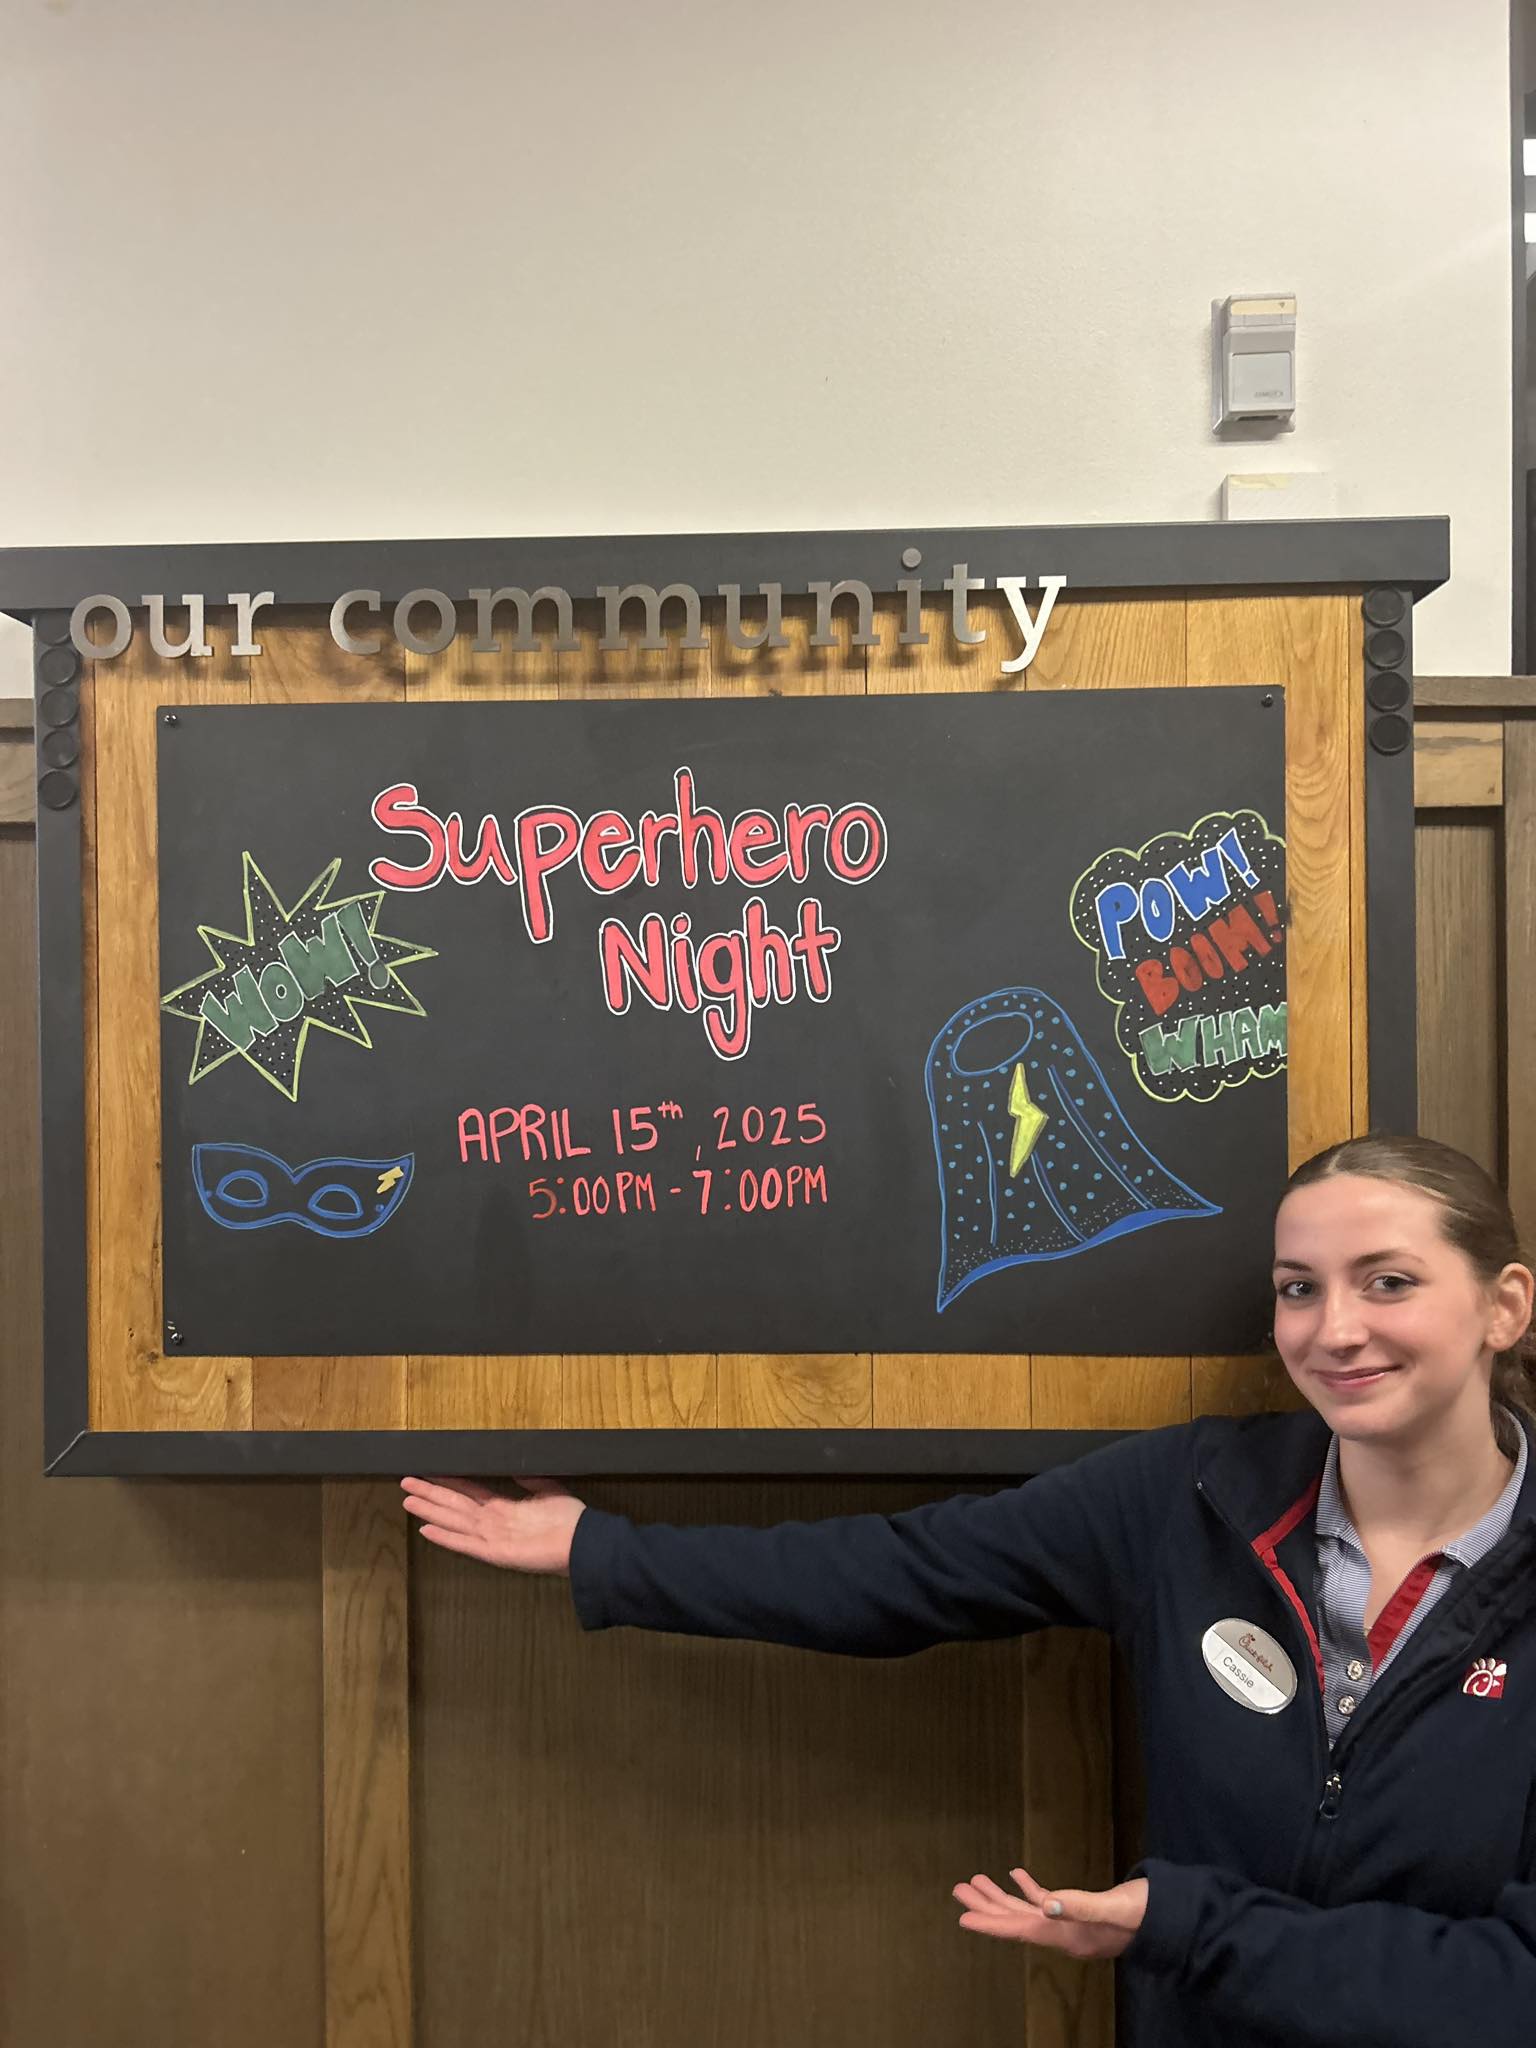 our community
Superhero
Night
WOW!
POW!
BOOM!
WHAM
APRIL 15th, 2025
5:00PM - 7:00PM
Chick-fil-A
Cassie